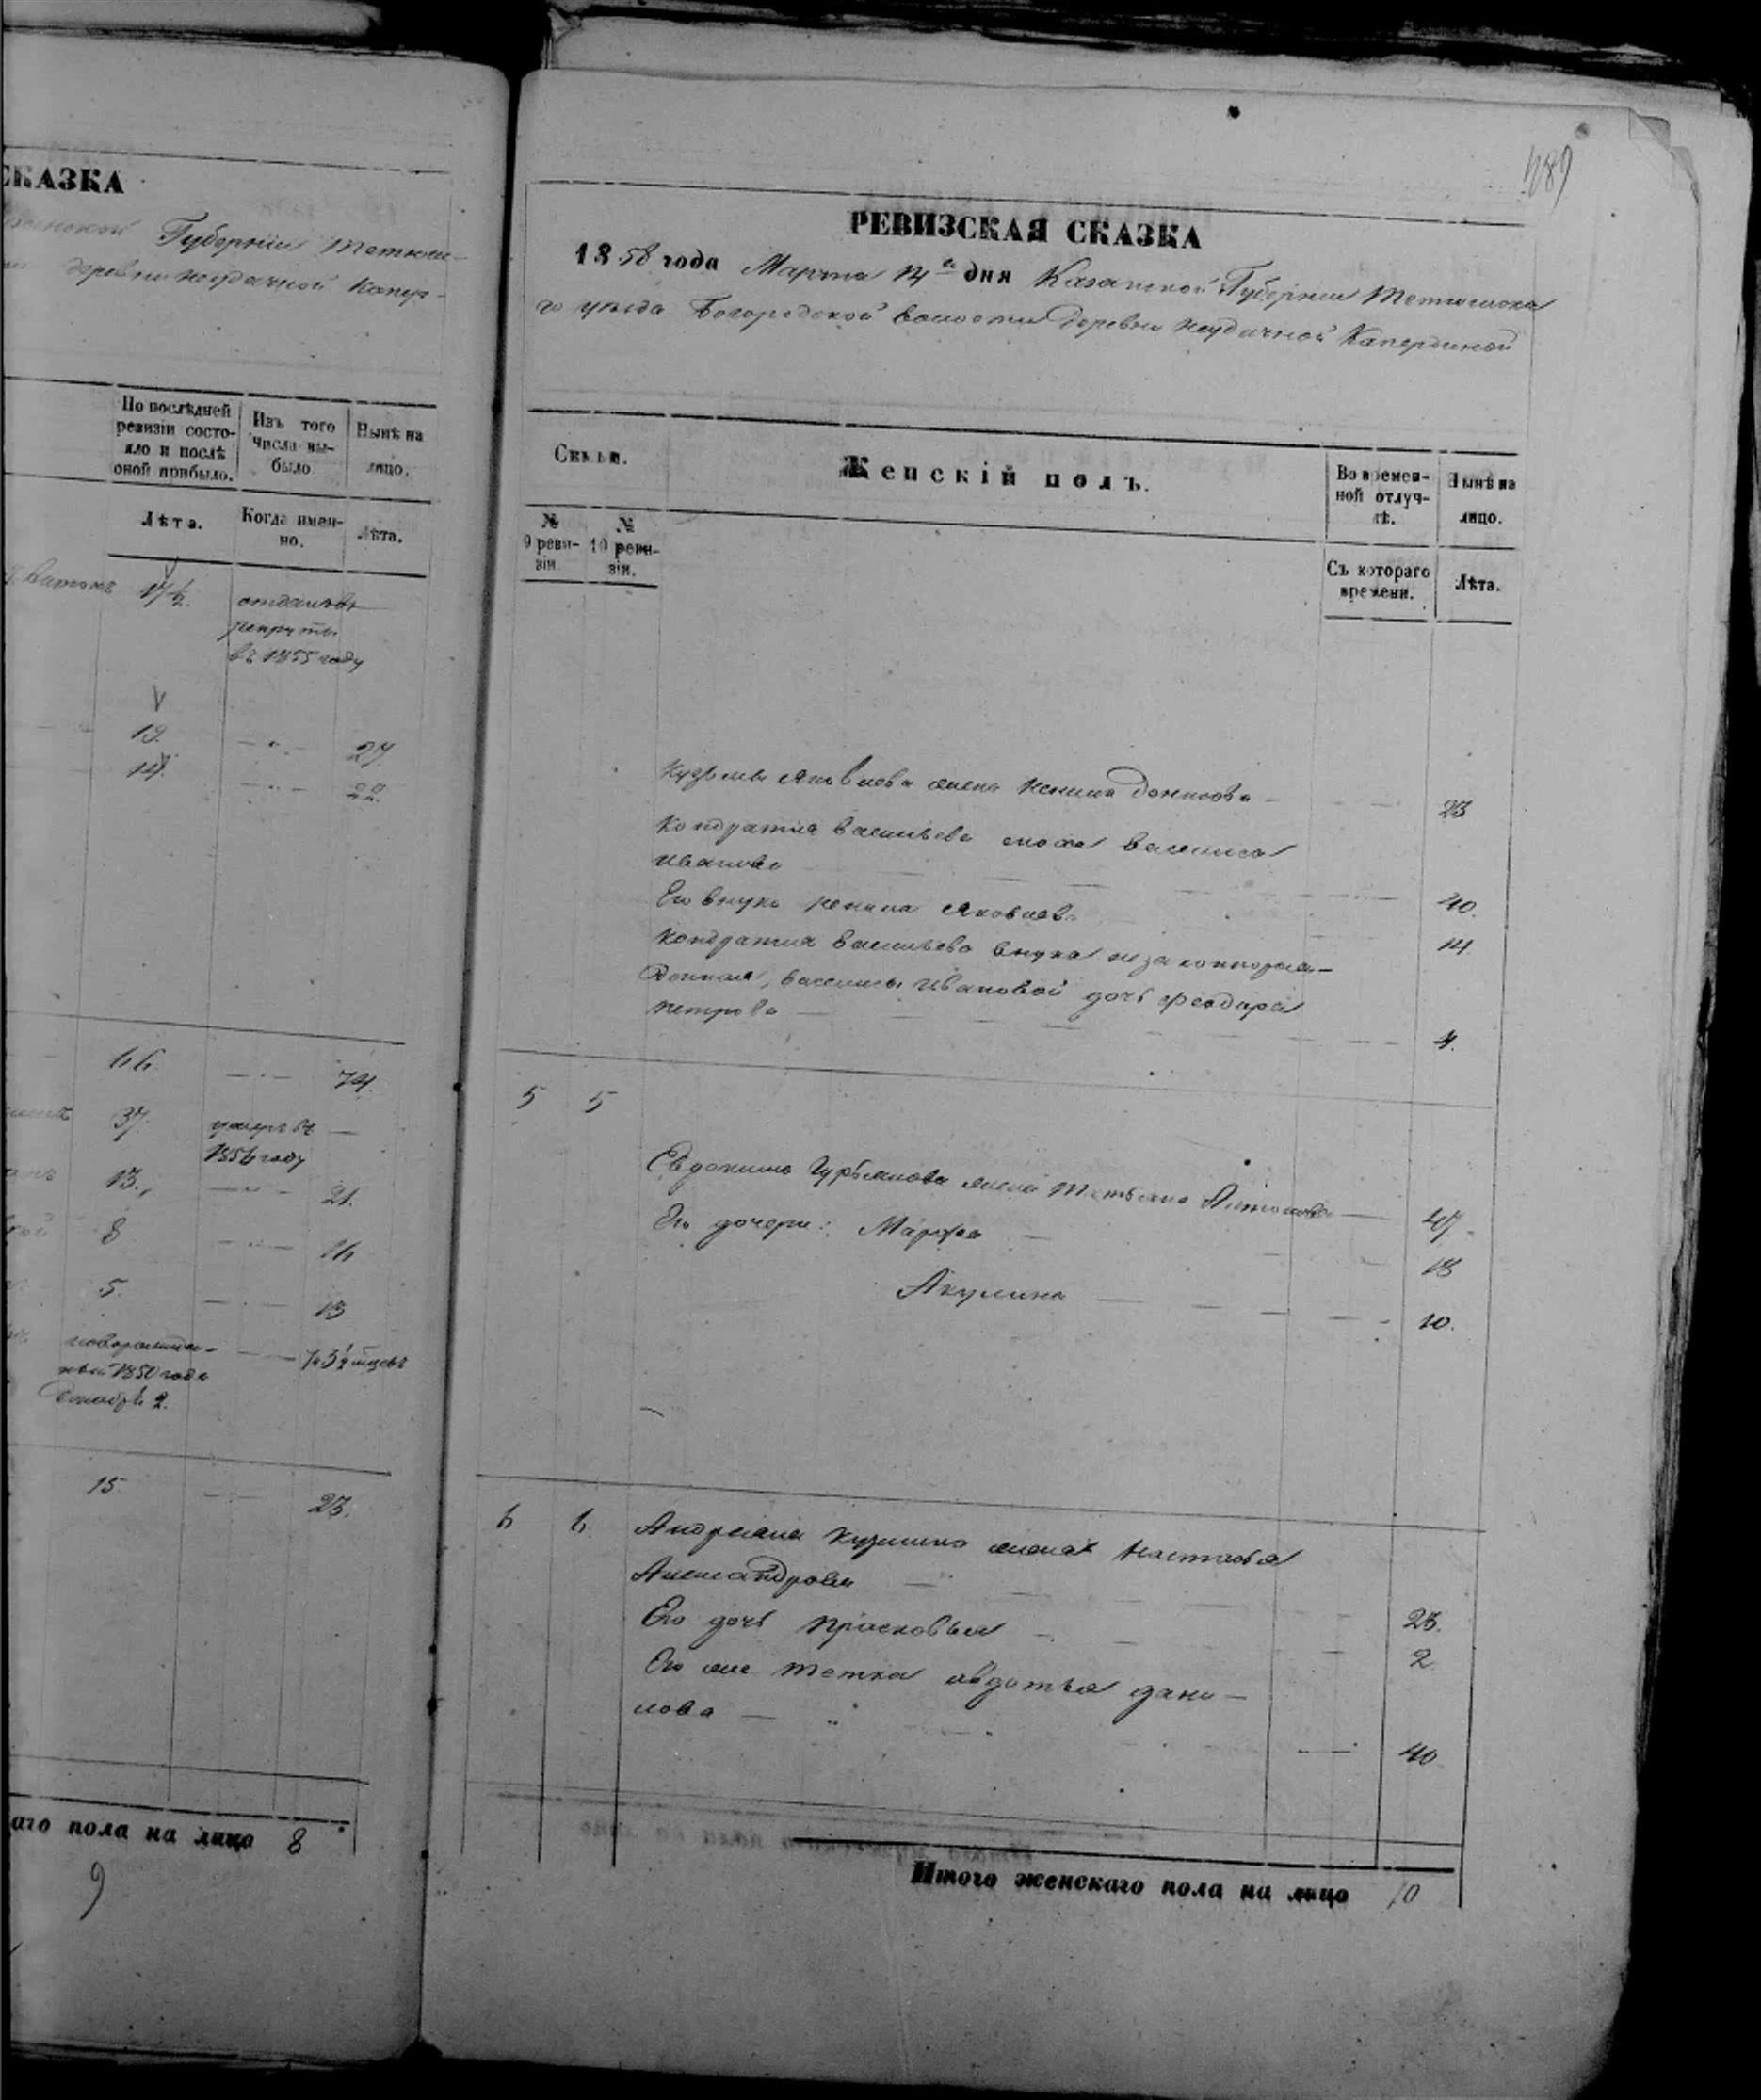 СКАЗКА
Губернии Тетюш-
деревни Неудачной Капер-
По послѣдней ревизіи состо-
яло и послѣ оной прибыло.
Изъ того числа вы-
было
Нынѣ на лицо.
Лѣта.
Когда имен-
но.
Лѣта.
17½
отданъ въ
рекруты
въ 1855 году
19.
27
14.
22.
66.
74.
37.
умеръ въ
1856 году
13.
21.
8
16
5.
13
новорожден-
ный 1850 года
Декабрь 2.
7 3½ мѣсяцевъ
15.
23.
аго пола на лицо 8
9
489
РЕВИЗСКАЯ СКАЗКА
1858 года Марта 14го дня Казанской Губернии Тетюшска
го уѣзда Богородской волости Деревни Неудачной Каперлиной
Семьи.
Женскій полъ.
Во времен-
ной отлуч-
кѣ.
Нынѣ на
лицо.
№
9 реви-
зіи.
№
10 реви-
зіи.
Съ котораго
времени.
Лѣта.
Кузьмы Яковлева жена Ненила Денисова — 23
Кондратия Васильева сноха Василиса
Иванова 40.
Его внука Ненила Яковлева 14
Кондратия Васильева внука незаконнорож-
денная, Василисы Ивановой дочь Феодора
Петрова — 4.
5 5
Евдокима Гурьянова жена Татьяна Антонова — 47
Его дочери: Марфа — 18
Акулина — 10.
6 6.
Андреяна Кузмина жена Настасья
Александрова — 23.
Его дочь Прасковья — 2
Его же тетка Авдотья Дани-
лова — 40
Итого женскаго пола на лицо 10